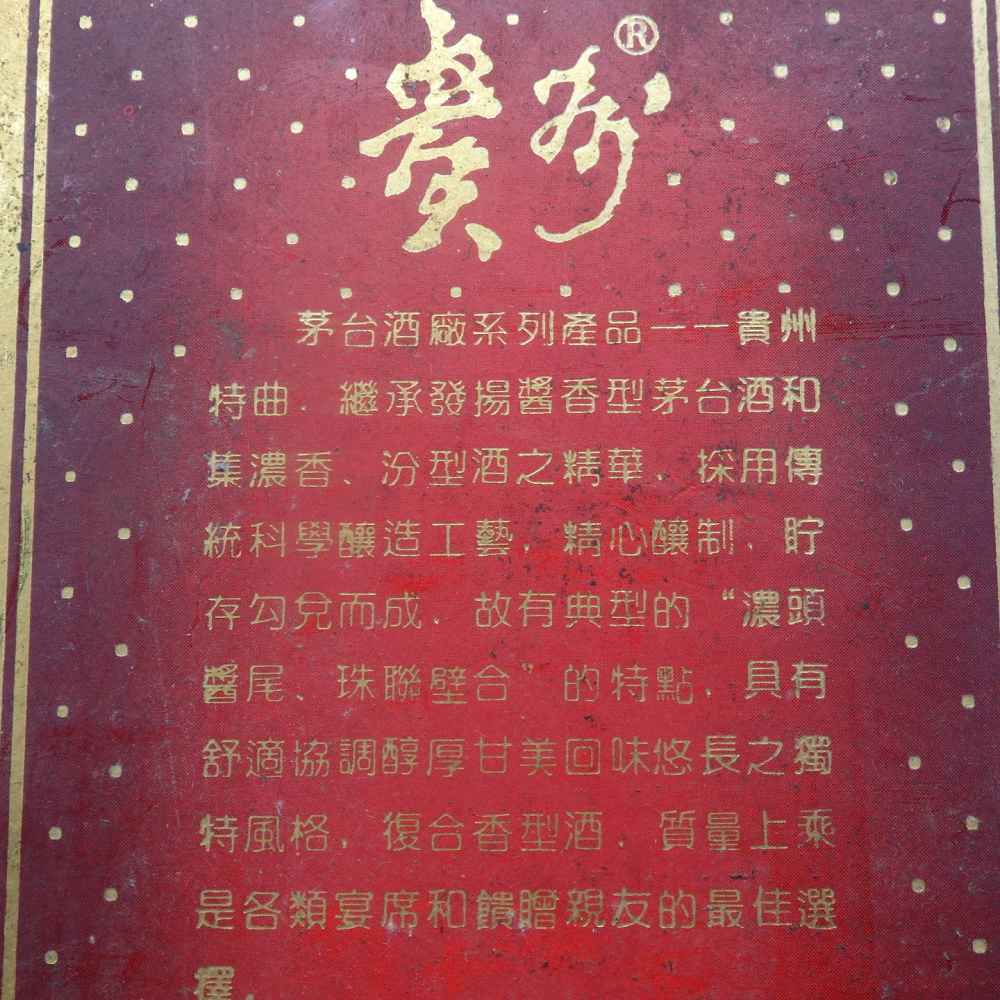 貴州®
茅台酒廠系列產品——貴州
特曲．繼承發揚醬香型茅台酒和
集濃香、汾型酒之精華．採用傳
統科學釀造工藝．精心釀制．貯
存勾兌而成．故有典型的“濃頭
醬尾、珠聯壁合”的特點．具有
舒適協調醇厚甘美回味悠長之獨
特風格．復合香型酒．質量上乘
是各類宴席和饋贈親友的最佳選
擇．